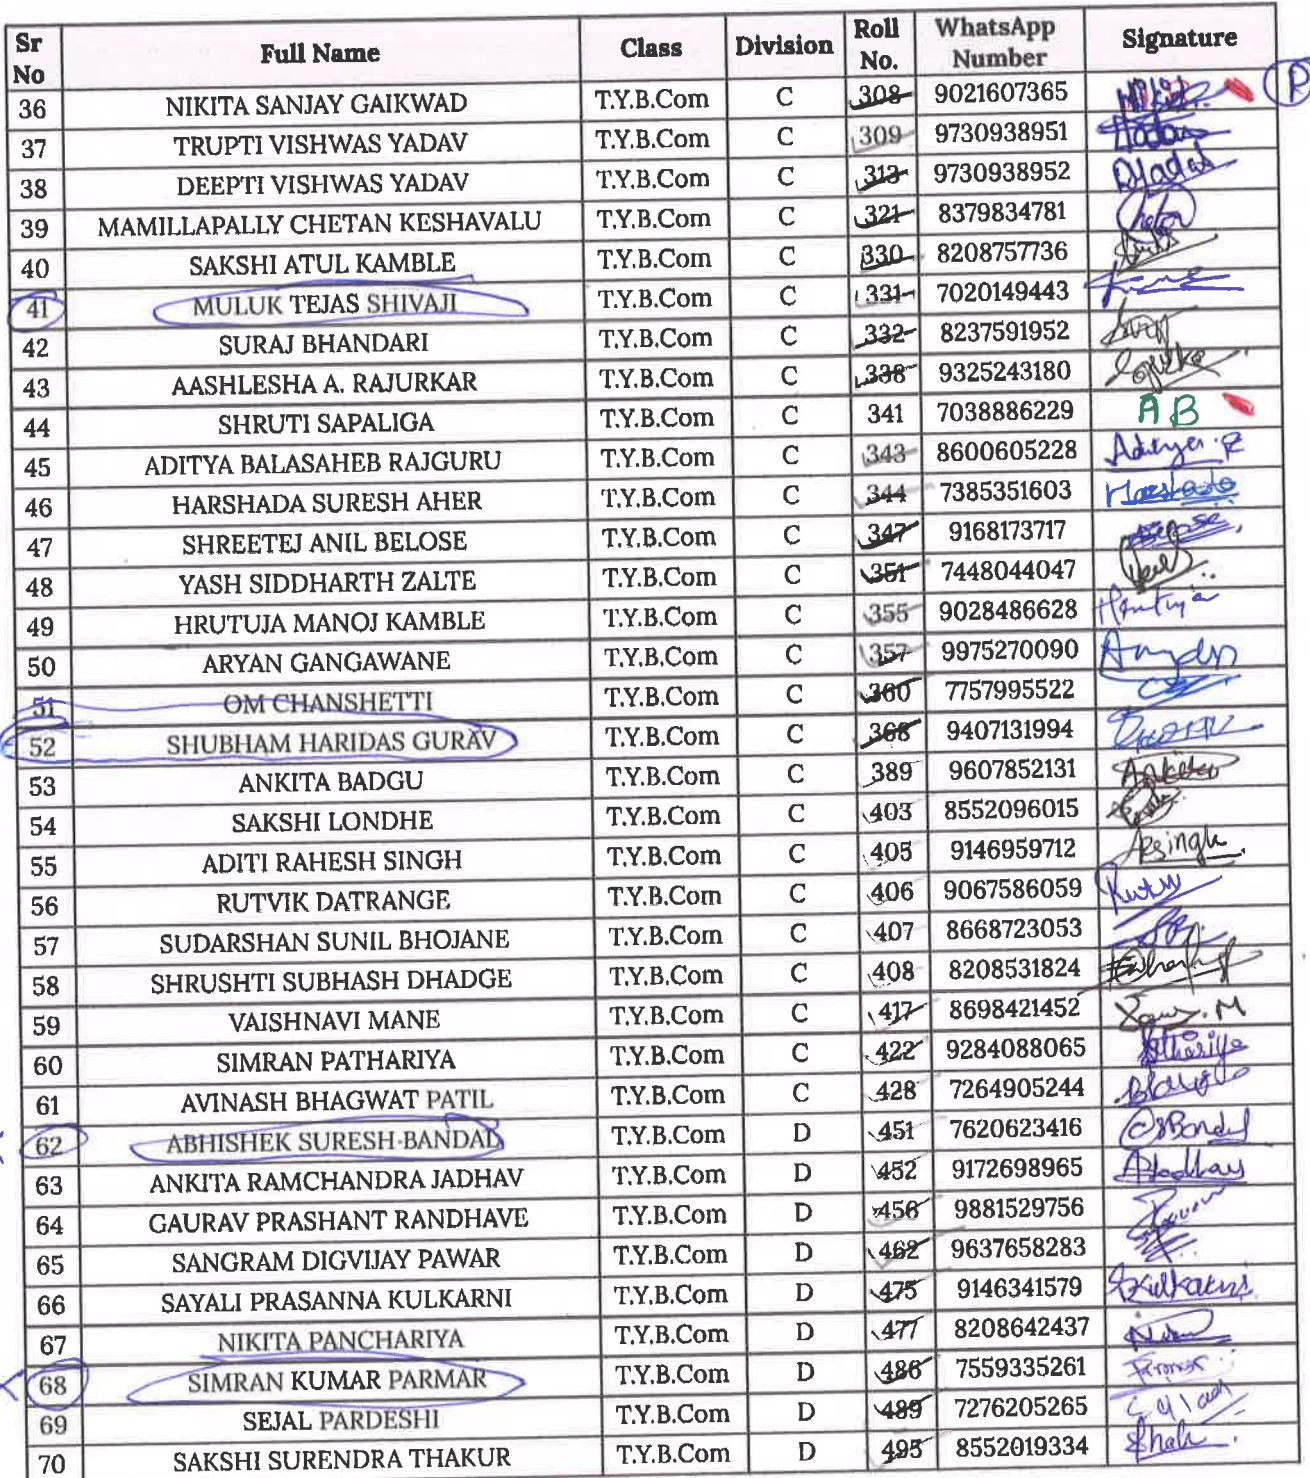 Sr No Full Name Class Division Roll No. WhatsApp Number Signature
36 NIKITA SANJAY GAIKWAD T.Y.B.Com C 308 9021607365
37 TRUPTI VISHWAS YADAV T.Y.B.Com C 309 9730938951
38 DEEPTI VISHWAS YADAV T.Y.B.Com C 313 9730938952
39 MAMILLAPALLY CHETAN KESHAVALU T.Y.B.Com C 321 8379834781
40 SAKSHI ATUL KAMBLE T.Y.B.Com C 330 8208757736
41 MULUK TEJAS SHIVAJI T.Y.B.Com C 331 7020149443
42 SURAJ BHANDARI T.Y.B.Com C 332 8237591952
43 AASHLESHA A. RAJURKAR T.Y.B.Com C 338 9325243180
44 SHRUTI SAPALIGA T.Y.B.Com C 341 7038886229 AB
45 ADITYA BALASAHEB RAJGURU T.Y.B.Com C 343 8600605228 Aditya.R
46 HARSHADA SURESH AHER T.Y.B.Com C 344 7385351603 Harshada
47 SHREETEJ ANIL BELOSE T.Y.B.Com C 347 9168173717
48 YASH SIDDHARTH ZALTE T.Y.B.Com C 351 7448044047
49 HRUTUJA MANOJ KAMBLE T.Y.B.Com C 355 9028486628 Hrutuja
50 ARYAN GANGAWANE T.Y.B.Com C 357 9975270090
51 OM CHANSHETTI T.Y.B.Com C 360 7757995522
52 SHUBHAM HARIDAS GURAV T.Y.B.Com C 368 9407131994
53 ANKITA BADGU T.Y.B.Com C 389 9607852131
54 SAKSHI LONDHE T.Y.B.Com C 403 8552096015
55 ADITI RAHESH SINGH T.Y.B.Com C 405 9146959712 ARsingh
56 RUTVIK DATRANGE T.Y.B.Com C 406 9067586059
57 SUDARSHAN SUNIL BHOJANE T.Y.B.Com C 407 8668723053
58 SHRUSHTI SUBHASH DHADGE T.Y.B.Com C 408 8208531824
59 VAISHNAVI MANE T.Y.B.Com C 417 8698421452
60 SIMRAN PATHARIYA T.Y.B.Com C 422 9284088065
61 AVINASH BHAGWAT PATIL T.Y.B.Com C 428 7264905244
62 ABHISHEK SURESH BANDAL T.Y.B.Com D 451 7620623416
63 ANKITA RAMCHANDRA JADHAV T.Y.B.Com D 452 9172698965 AJadhav
64 GAURAV PRASHANT RANDHAVE T.Y.B.Com D 456 9881529756
65 SANGRAM DIGVIJAY PAWAR T.Y.B.Com D 462 9637658283
66 SAYALI PRASANNA KULKARNI T.Y.B.Com D 475 9146341579 SKulkarni
67 NIKITA PANCHARIYA T.Y.B.Com D 477 8208642437
68 SIMRAN KUMAR PARMAR T.Y.B.Com D 486 7559335261
69 SEJAL PARDESHI T.Y.B.Com D 489 7276205265
70 SAKSHI SURENDRA THAKUR T.Y.B.Com D 495 8552019334